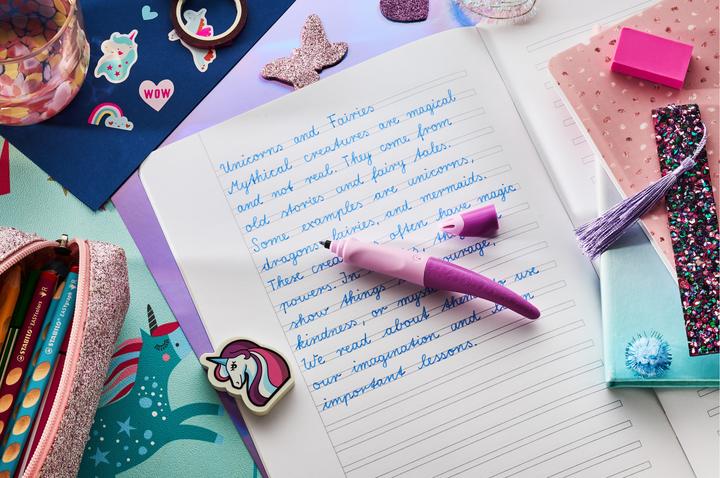 WOW
Unicorns and Fairies
Mythical creatures are magical
and not real. They come from
old stories and fairy tales.
Some examples are unicorns,
dragons, fairies, and mermaids.
These often have magic
powers. In
show things courage,
kindness, or
We read about to use
our imagination and
important lessons.
STABILO EASYcolors R
STABILO EASYgraph